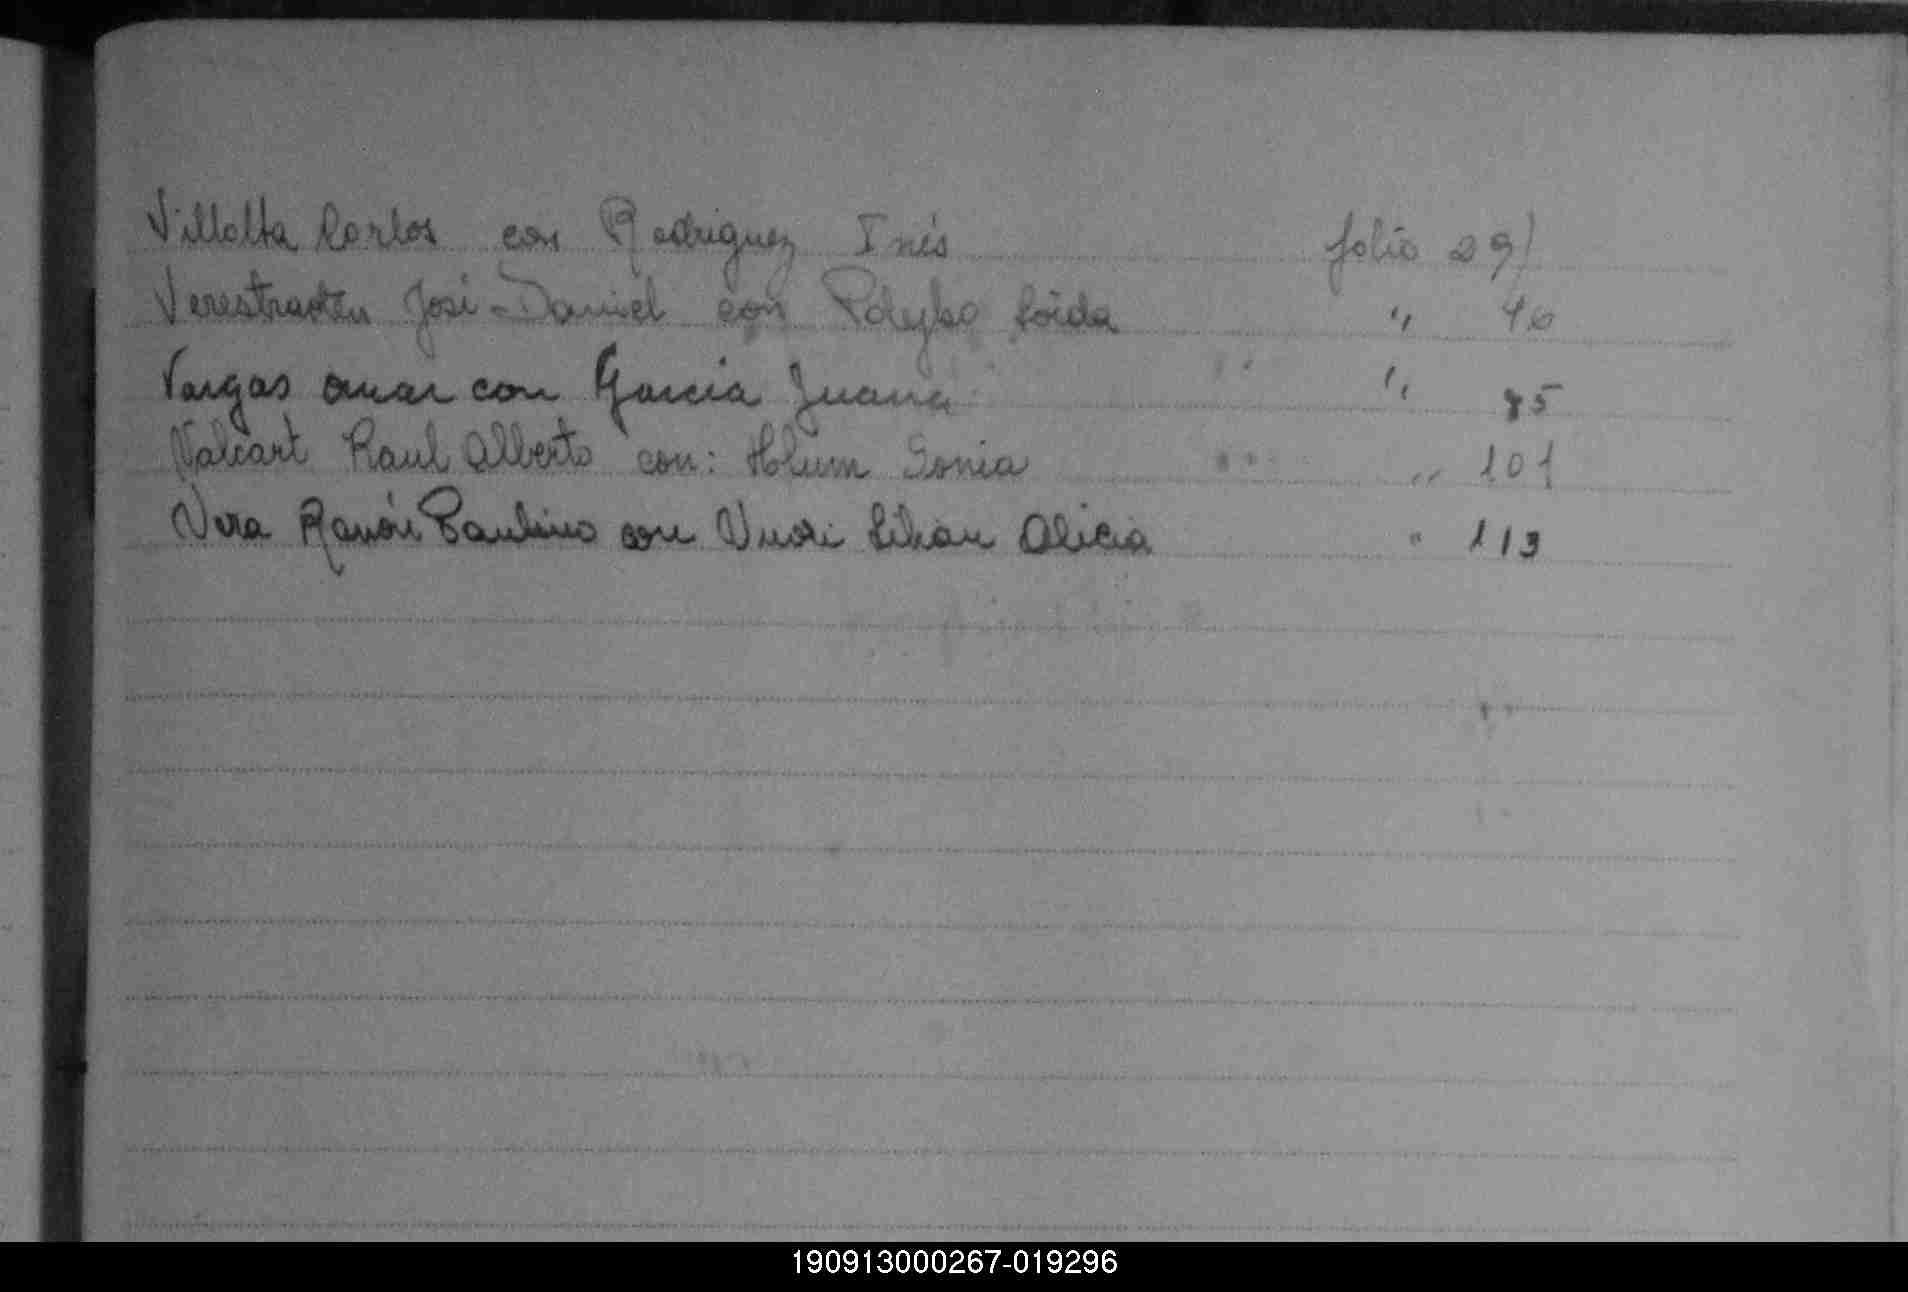 Villalta Carlos con Rodriguez Inés folio 29
Verestraeten José Daniel con " 40
Vargas omar con Garcia Juana " 85
Valcart Raul Alberto con: Holum Sonia " 101
Vera Ramón Paulino con Vuori Lilian Alicia " 113
190913000267-019296